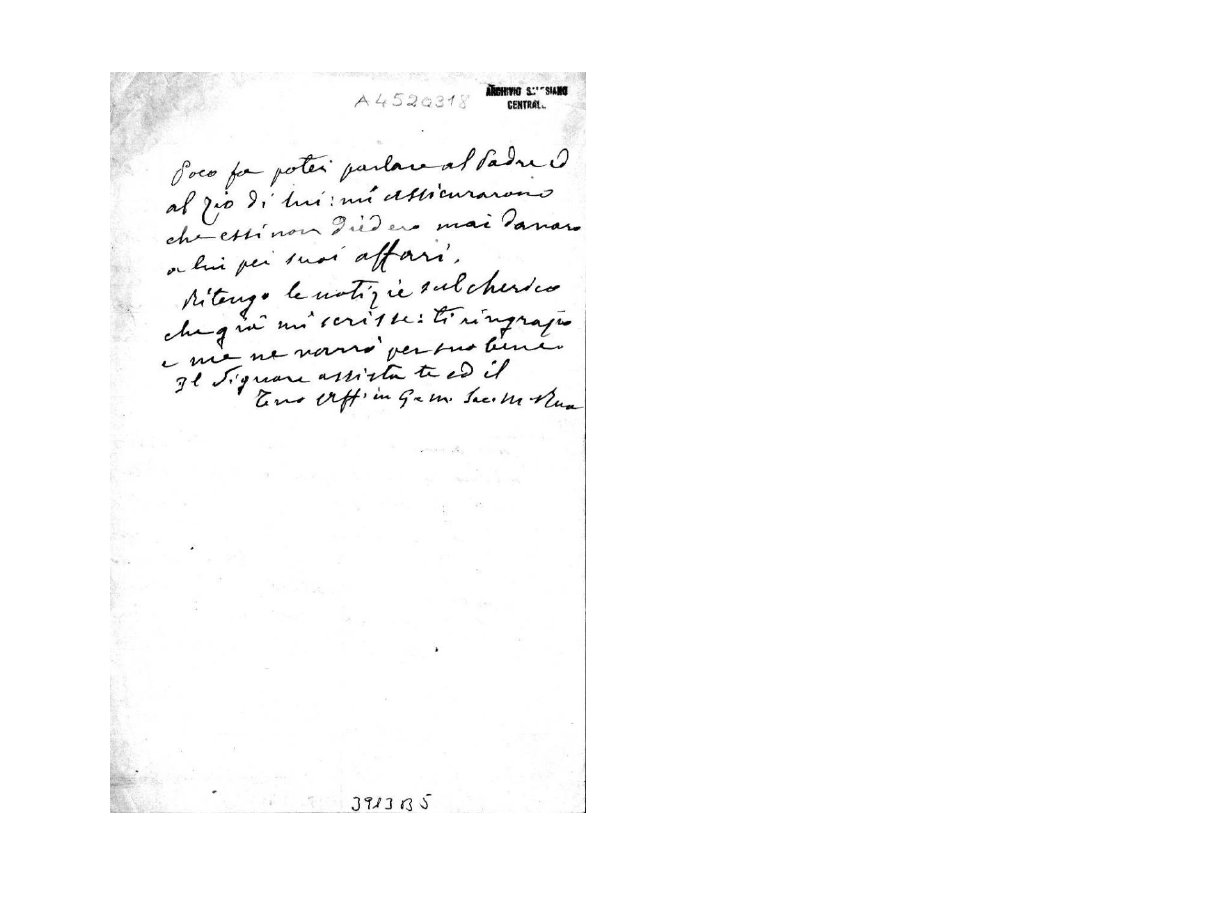 A4520318
ARCHIVIO SALESIANO
CENTRALE
Poco fa potei parlare al Padre ed
al zio di lui: mi assicurarono
che essi non diedero mai danaro
a lui pei suoi affari.
Ritengo le notizie sul cherico
che già mi scrisse: ti ringrazio
e me ne varrò per suo bene
Il Signore assista te ed il
Tuo Aff. in G. e M. Sac. M. Rua
3983 B 5